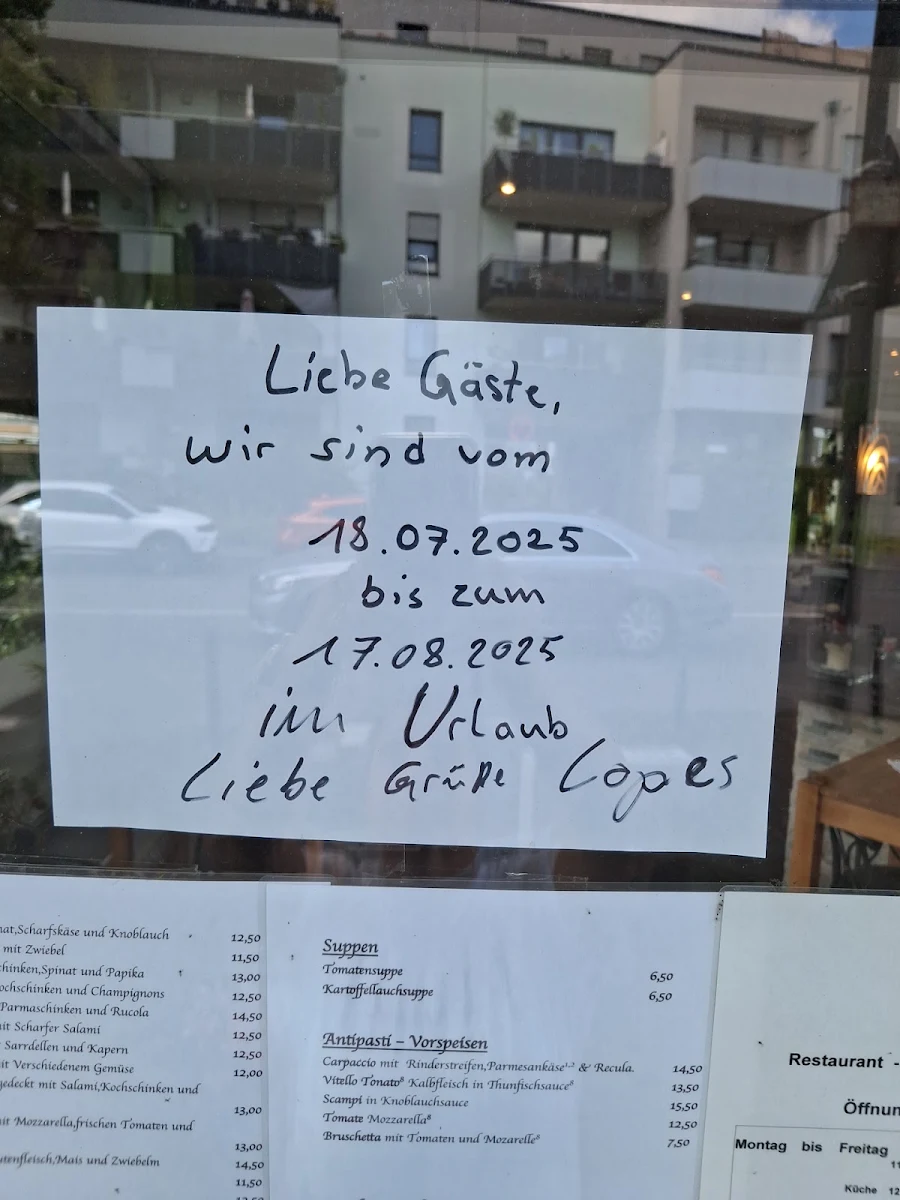 Liebe Gäste,
wir sind vom
18.07.2025
bis zum
17.08.2025
im Urlaub
Liebe Grüße Lopes
Scharfskäse und Knoblauch 12,50
mit Zwiebel 11,50
Spinat und Papika 13,00
und Champignons 12,50
Parmaschinken und Rucola 14,50
Scharfer Salami 12,50
Sarrdellen und Kapern 12,50
Verschiedenem Gemüse 12,00
mit Salami,Kochschinken und
13,00
Mozzarella,frischen Tomaten und
13,00
Mais und Zwiebelm 14,50
11,50
Suppen
Tomatensuppe 6,50
Kartoffellauchsuppe 6,50
Antipasti – Vorspeisen
Carpaccio mit Rinderstreifen,Parmesankäse¹·² & Recula. 14,50
Vitello Tonato⁸ Kalbfleisch in Thunfischsauce⁸ 13,50
Scampi in Knoblauchsauce 15,50
Tomate Mozzarella⁸ 12,50
Bruschetta mit Tomaten und Mozarelle⁸ 7,50
Restaurant -
Montag bis Freitag
11
Küche 12